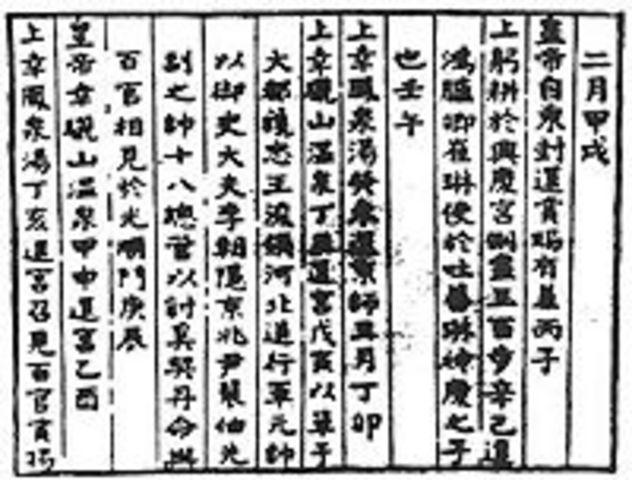 二月甲戌
皇帝自東封還賞賜有差丙子
上躬耕於興慶宮側盡三百步辛己還
鴻臚卿崔琳使於吐蕃琳神慶之子
也壬午
上幸鳳泉湯癸未還京師五月丁卯
上幸驪山溫泉丁亥還宮戊寅以單于
大都護忠王浚領河北道行軍元帥
以御史大夫李朝隱京兆尹裴伷先
副之帥十八總管以討奚契丹命與
百官相見於光順門庚辰
皇帝幸驪山溫泉甲申還宮乙酉
上幸鳳泉湯丁亥還宮召見百官賞